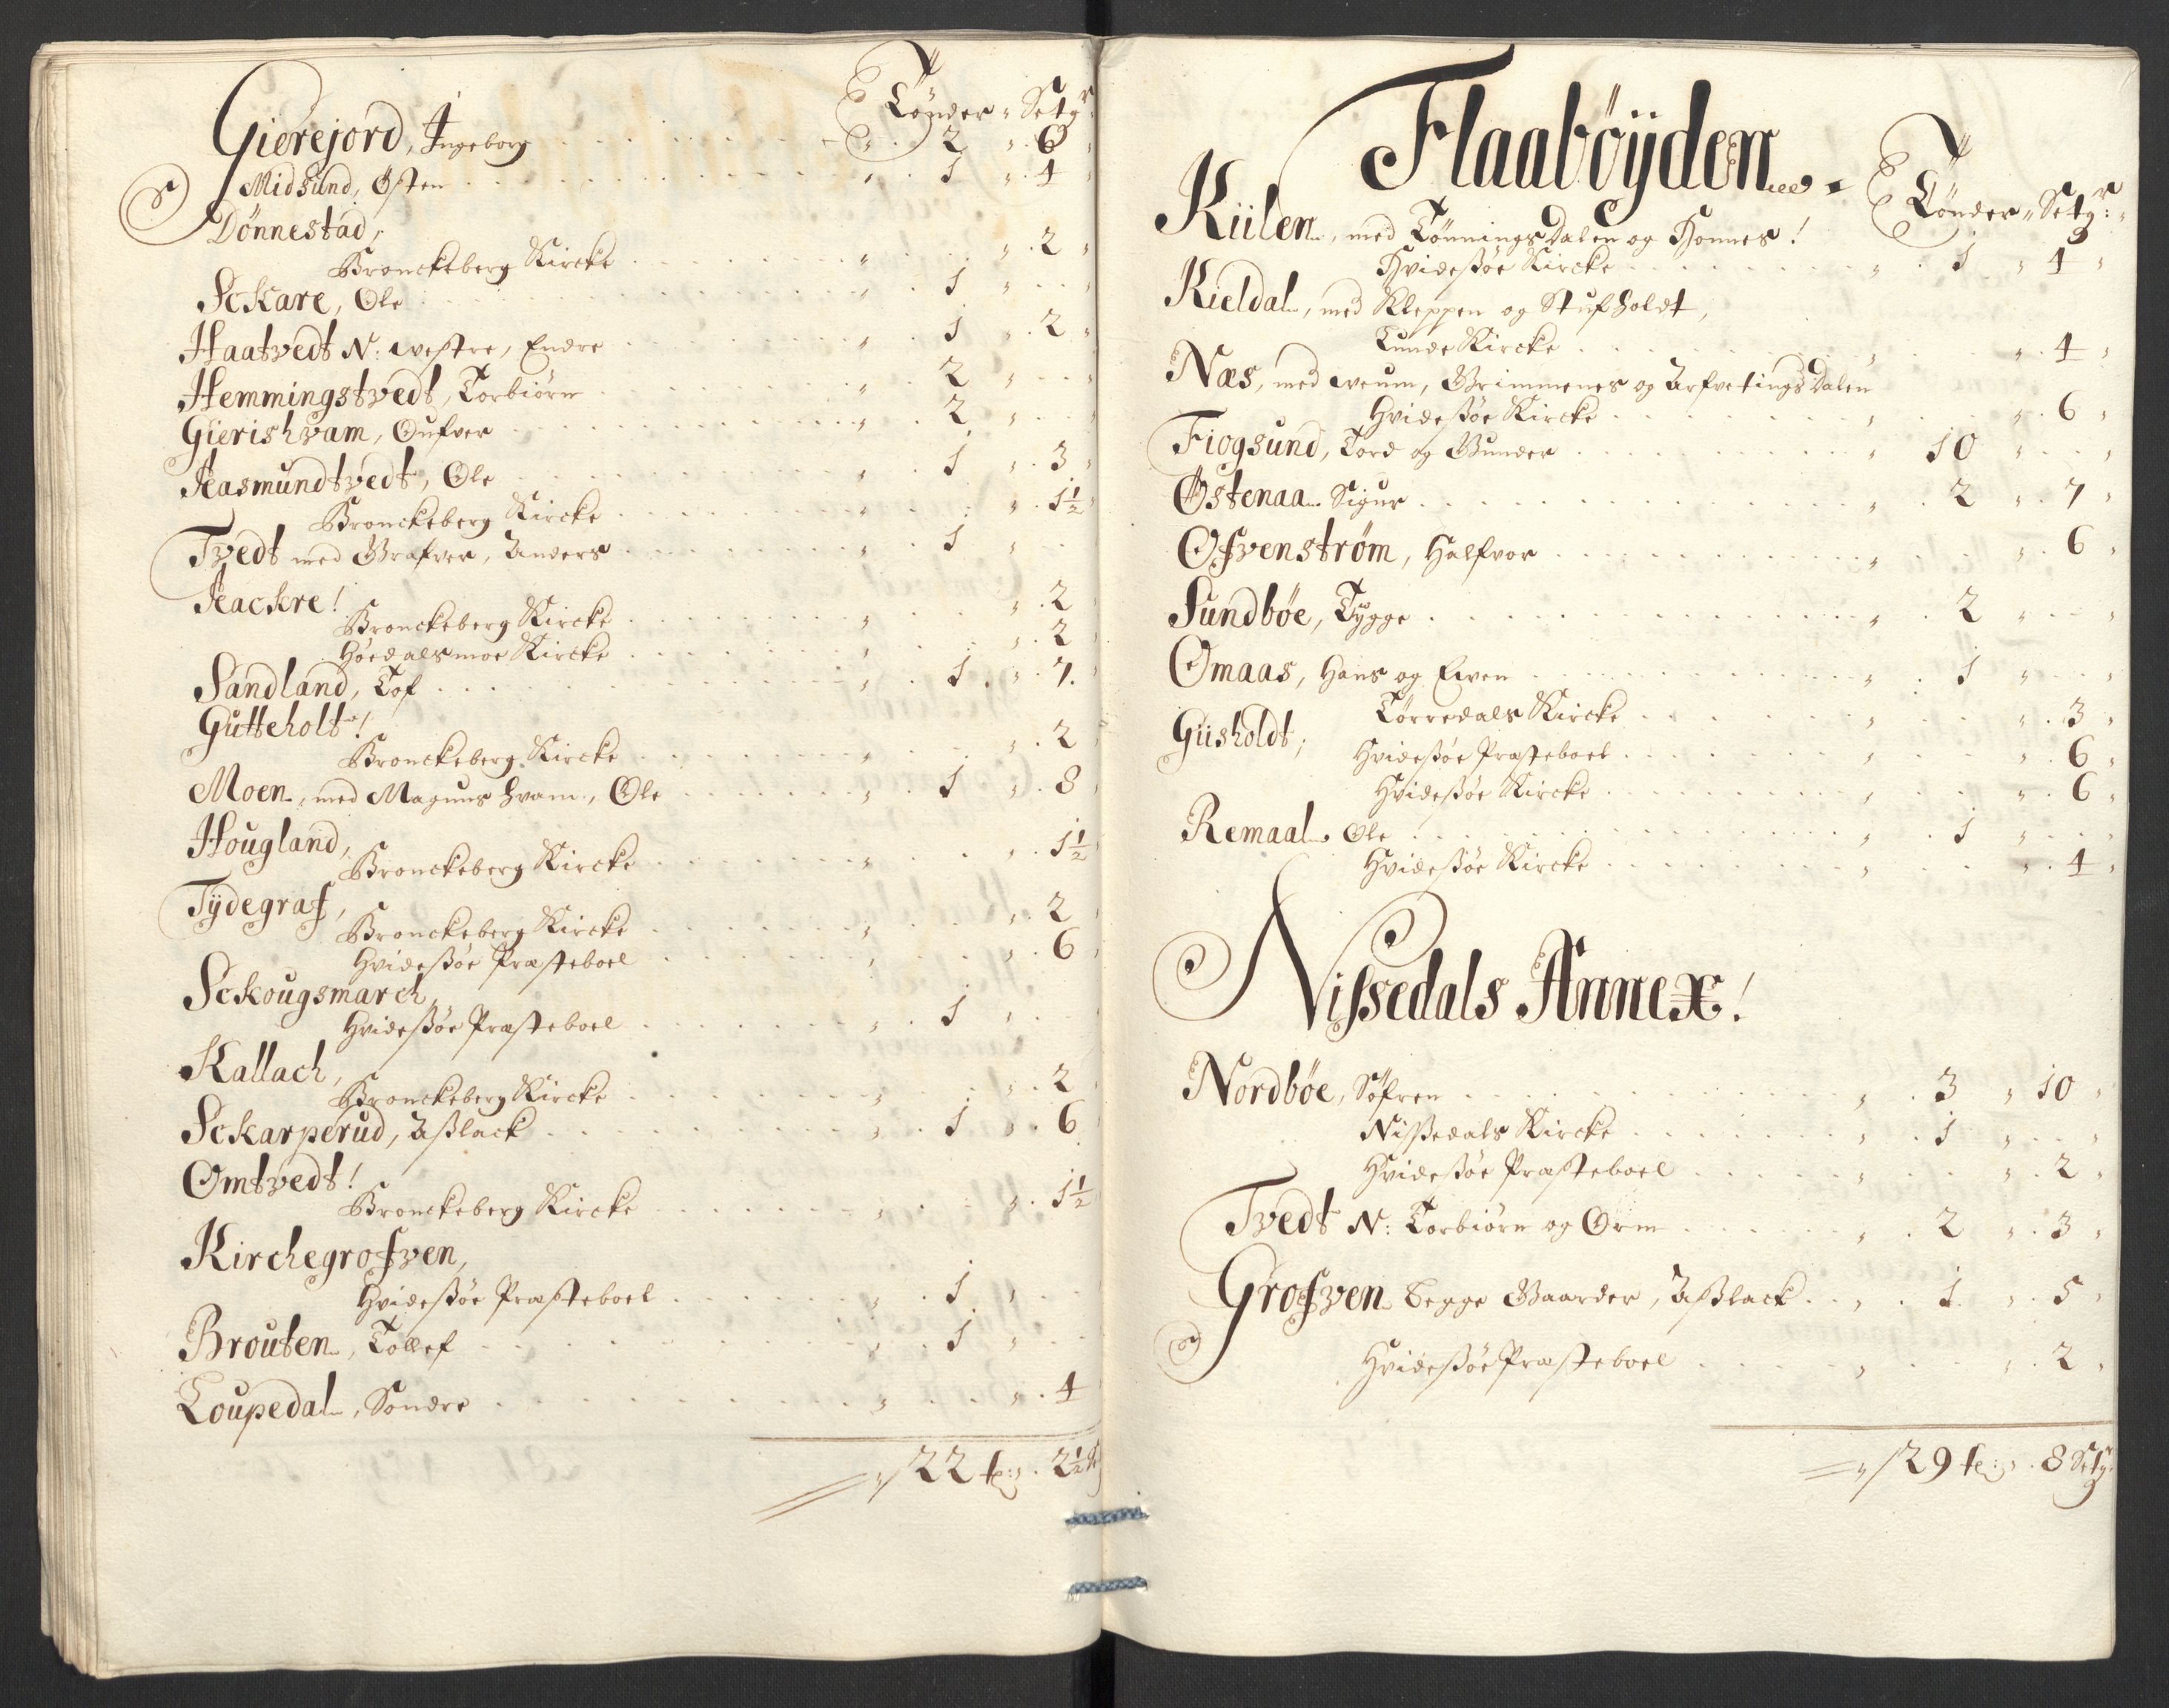 Tönder " Setgr
Gierejord, Ingeborg . . . " . 2 " . 6 "
Midsund, Østen . . . " . 1 " . 4 "
Dönnestad,
Bronckeberg Kircke . . . " . . " . 2 "
Sckare, Ole . . . " . 1 " . . "
Haatvedt N: westre, Endre . . . " . 1 " . 2 "
Hemmingstvedt, Torbiörn . . . " . 2 " . . "
Gierishvam, Oufver . . . " . 2 " . . "
Aasmundtvedt, Ole . . . " . 1 " . 3 "
Bronckeberg Kircke . . . " . . " . 1½ "
Tvedt med Grafver, Anders . . . " . 1 " . .
Aackre!
Bronckeberg Kircke . . . " . . " . 2 "
Höedalsmoe Kircke . . . " . . " . 2 "
Sandland, Tof . . . " . 1 . " . 7.
Gutteholt!
Bronckeberg Kircke . . . " . . " . 2 "
Moen, med Magnus hvam, Ole . . . " . 1 " . 8 "
Hougland,
Bronckeberg Kircke . . . " . . " . 1½
Tÿdegraf,
Bronckeberg Kircke . . . " . . " . 2 "
Hvidesßöe Præsteboel . . . " . . " . 6 "
Sckougsmarch,
Hvidesßöe Præsteboel . . . " . 1 " . .
Kallach,
Bronckeberg Kircke . . . " . . " . 2 "
Sckarperud, Aßlack . . . " . 1 " . 6
Omtvedt!
Bronckeberg Kircke . . . " . . " . 1½
Kirchegrofven,
Hvidesßöe Præsteboel . . . " . 1 " . .
Brouten, Tollef . . . " . 1 " . .
Loupedal, Sondre . . . " . . " . 4
22 te: " . 2½ S
Flaabÿgden.
Tönder " Setgr: "
Kiilen, med Tönnings Dalen og Honnes!
Hvidesßöe Kircke . . . " . 1 " . 4 "
Kieldal, med Kleppen og Stufholdt,
Lunde Kircke . . . " . . " . 4 "
Næs, med weum, Grimmenes og Arfvetings Dalen
Hvidesßöe Kircke . . . " . . " . 6 "
Fiogsund, Tord og Gunder . . . " 10 " . . "
Östenaa. Sigur . . . " . 2 " . 7 "
Ofvenström, Halfvor . . . " . . " . 6 "
Sundböe, Tygge . . . " . 2 " . . "
Omaas, Hans og Even . . . " . 1 " . . "
Törredals Kircke . . . " . . " . 3 "
Giisholdt, Hvidesßöe Præsteboel . . . " . . " . 6 "
Hvidesßöe Kircke . . . " . . " . 6 "
Remaal. Ole . . . " . 1 " . . "
Hvidesßöe Kircke . . . " . . " . 4 "
Nißedals Annex!
Nordböe, Söfren . . . " . 3 " 10 "
Nißedals Kircke . . . " . 1 " . . "
Hvidesßöe Præsteboel . . . " . . " . 2 "
Tvedt N: Torbiörn og Orm . . . " . 2 " . 3 "
Grofven begge Gaarder, Aßlack . . " . 1 " . 5 "
Hvidesßöe Præsteboel . . . " . . " . 2 "
29 te: " . 8 Setgr